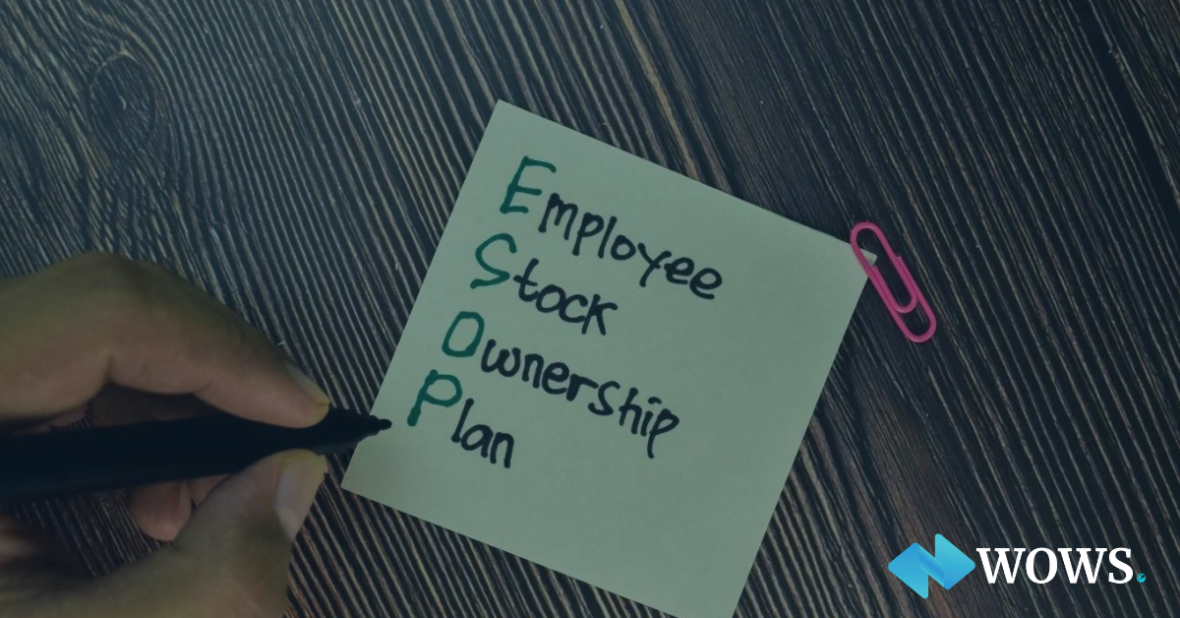 Employee
Stock
Ownership
Plan
WOWS.